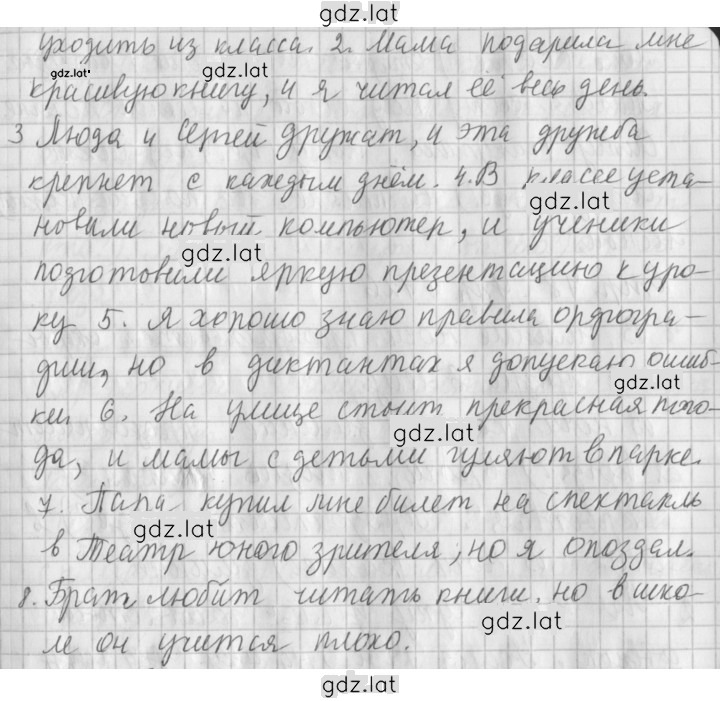 gdz.lat
уходить из класса. 2. Мама подарила мне
gdz.lat
gdz.lat
красивую книгу, и я читал её весь день.
3 Люда и Сергей дружат, и эта дружба
крепнет с каждым днём. 4. В классе уста-
gdz.lat
новили новый компьютер, и ученики
gdz.lat
подготовили яркую презентацию к уро-
ку 5. Я хорошо знаю правила орфогра-
фии, но в диктантах я допускаю ошиб-
gdz.lat
ки 6. На улице стоит прекрасная пого-
gdz.lat
да, и мамы с детьми гуляют в парке.
7. Папа купил мне билет на спектакль
gdz.lat
в Театр юного зрителя, но я опоздал.
8. Брат любит читать книги, но в шко-
gdz.lat
ле он учится плохо.
gdz.lat